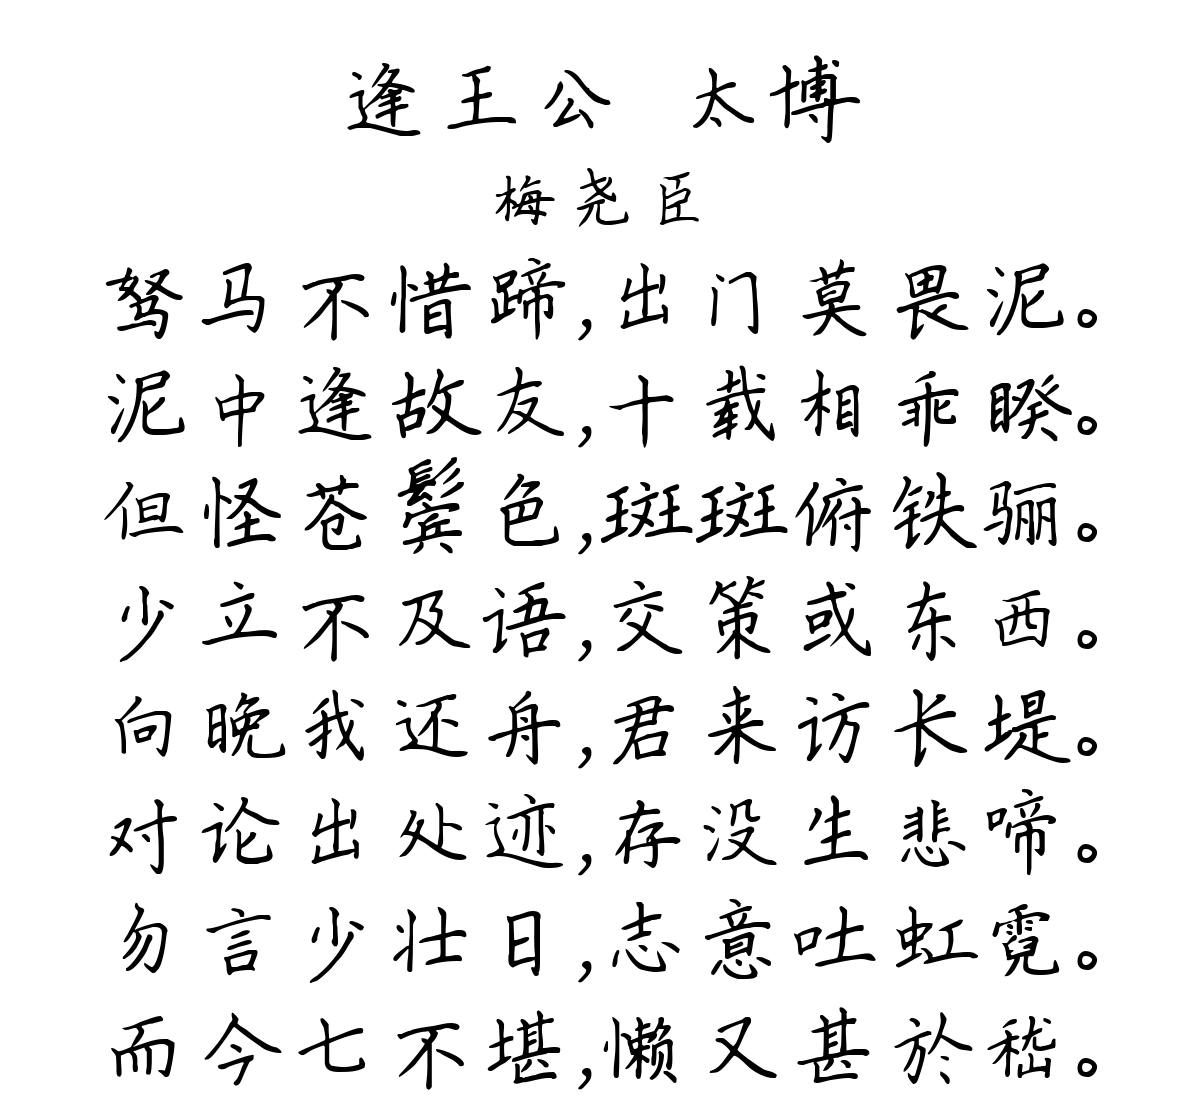 逢王公 太博
梅尧臣
驽马不惜蹄,出门莫畏泥。
泥中逢故友,十载相乖睽。
但怪苍鬓色,斑斑俯铁骊。
少立不及语,交策或东西。
向晚我还舟,君来访长堤。
对论出处迹,存没生悲啼。
勿言少壮日,志意吐虹霓。
而今七不堪,懒又甚於嵇。